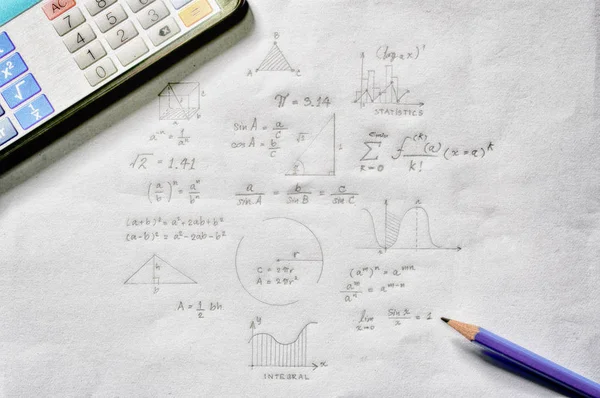 AC 7 8 9
4 5 6
1 2 3
0
x²
√
1/x
B
A C
(log₂x)'
STATISTICS
π = 3.14
a⁻ⁿ = 1/aⁿ
sin A = a/c
cos A = b/c
√2 1
√2 = 1.41
Σ k=0 f⁽ᵏ⁾(a)/k! (x=a)ᵏ
(a/b)ⁿ = aⁿ/bⁿ
a/sin A = b/sin B = c/sin C
(a+b)² = a²+2ab+b²
(a-b)² = a²-2ab-b²
r
C = 2πr
A = 2πr²
(aᵐ)ⁿ = aᵐⁿ
aᵐ/aⁿ = aᵐ⁻ⁿ
h
b
A = 1/2 bh
lim x→0 sin x/x = 1
y
x
INTEGRAL